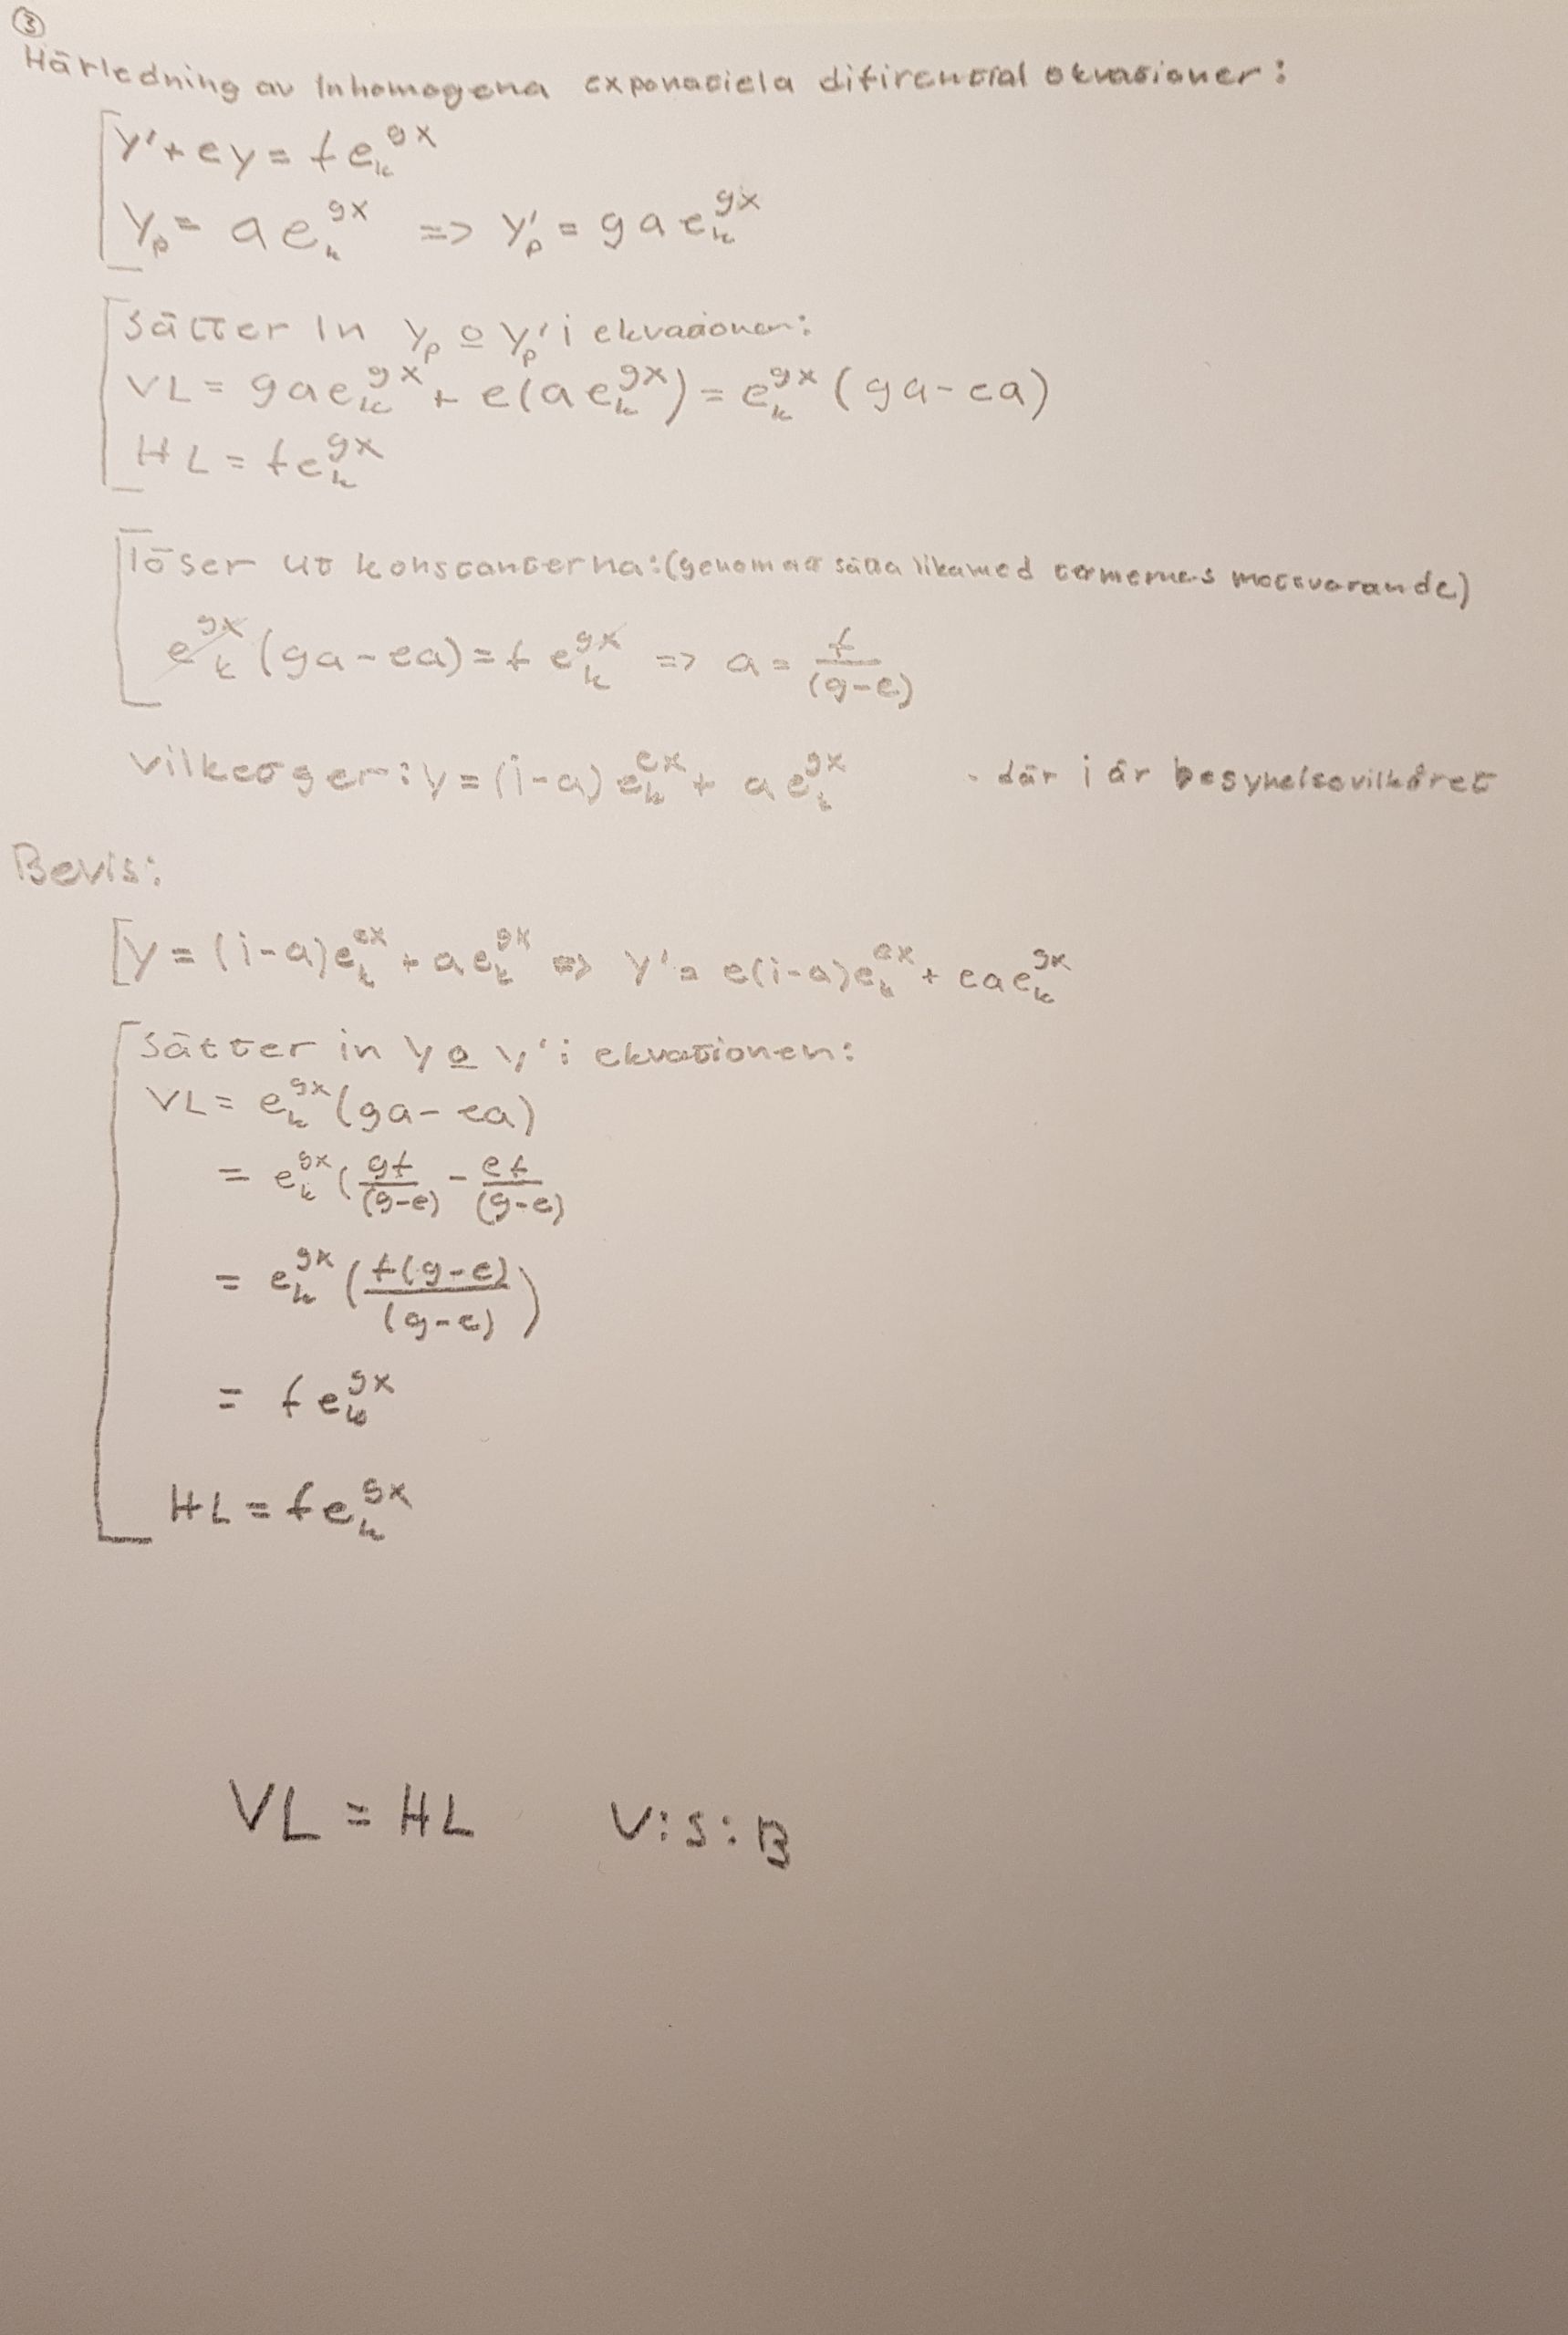 ③
Härledning av Inhomogena exponatiela difirential ekvationer:
y' + ey = f e_k^{gx}
y_p = a e_k^{gx} => y'_p = g a e_k^{gx}
Sätter In y_p o y_p' i ekvationen:
VL = g a e_k^{gx} + e(a e_k^{gx}) = e_k^{gx} (ga - ea)
HL = f e_k^{gx}
löser ut konstanterna: (genom att sätta likamed termernas motsvarande)
e_k^{gx} (ga - ea) = f e_k^{gx} => a = f/(g-e)
vilket ger: y = (i-a) e_k^{ex} + a e_k^{gx} - där i är begynelsevilkåret
Bevis:
y = (i-a) e_k^{ex} + a e_k^{gx} => y' = e(i-a) e_k^{ex} + e a e_k^{gx}
Sätter in y o y' i ekvationen:
VL = e_k^{gx} (ga - ea)
= e_k^{gx} (gf/(g-e) - ef/(g-e)
= e_k^{gx} (f(g-e)/(g-e))
= f e_k^{gx}
HL = f e_k^{gx}
VL = HL V:S:B